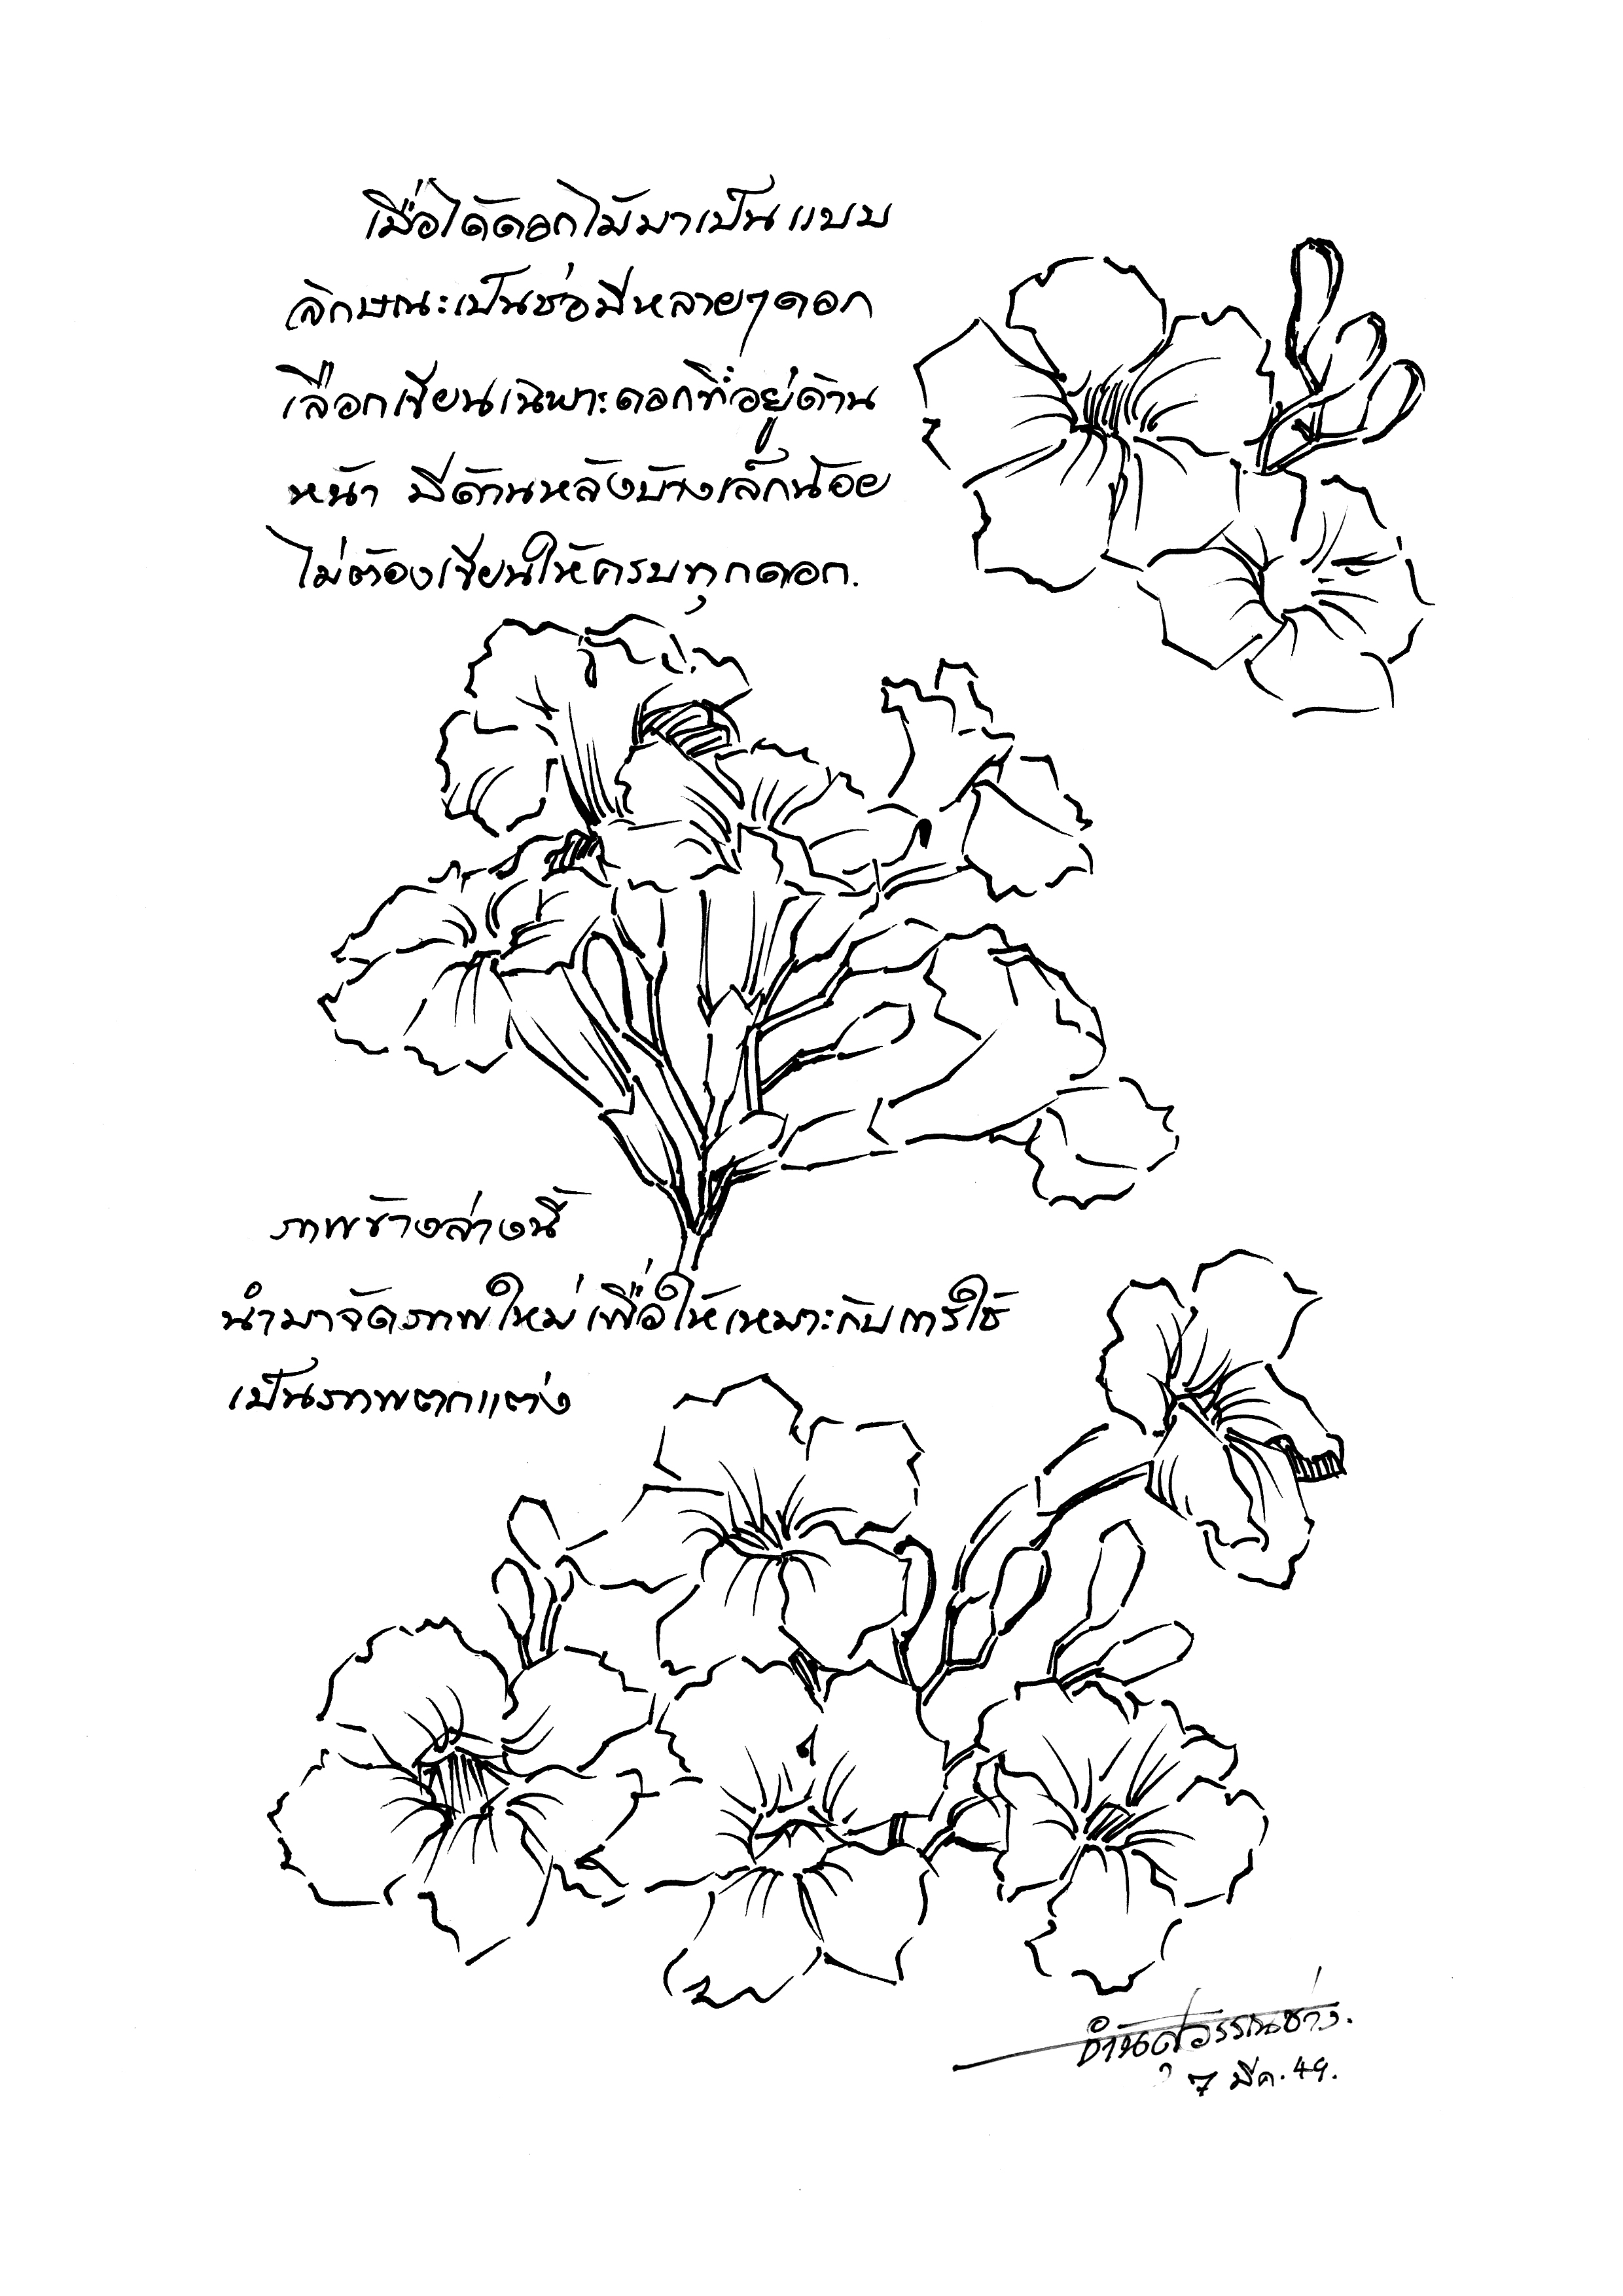 เมื่อได้ดอกไม้มาเป็นแบบ
ลักษณะเป็นช่อมีหลายๆดอก
เลือกเขียนเฉพาะดอกที่อยู่ด้าน
หน้า มีด้านหลังบ้างเล็กน้อย
ไม่ต้องเขียนให้ครบทุกดอก.
ภาพข้างล่างนี้
นำมาจัดภาพใหม่เพื่อให้เหมาะกับการใช้
เป็นภาพตกแต่ง
สุวรรณช่าง.
7 มีค. 49.